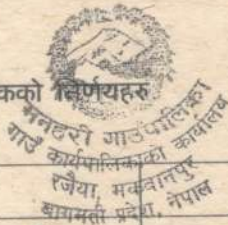 कको निर्णयहरु
मनहरी गाउँपालिका
गाउँ कार्यपालिकाको कार्यालय
रजैया, मकवानपुर
बागमती प्रदेश, नेपाल